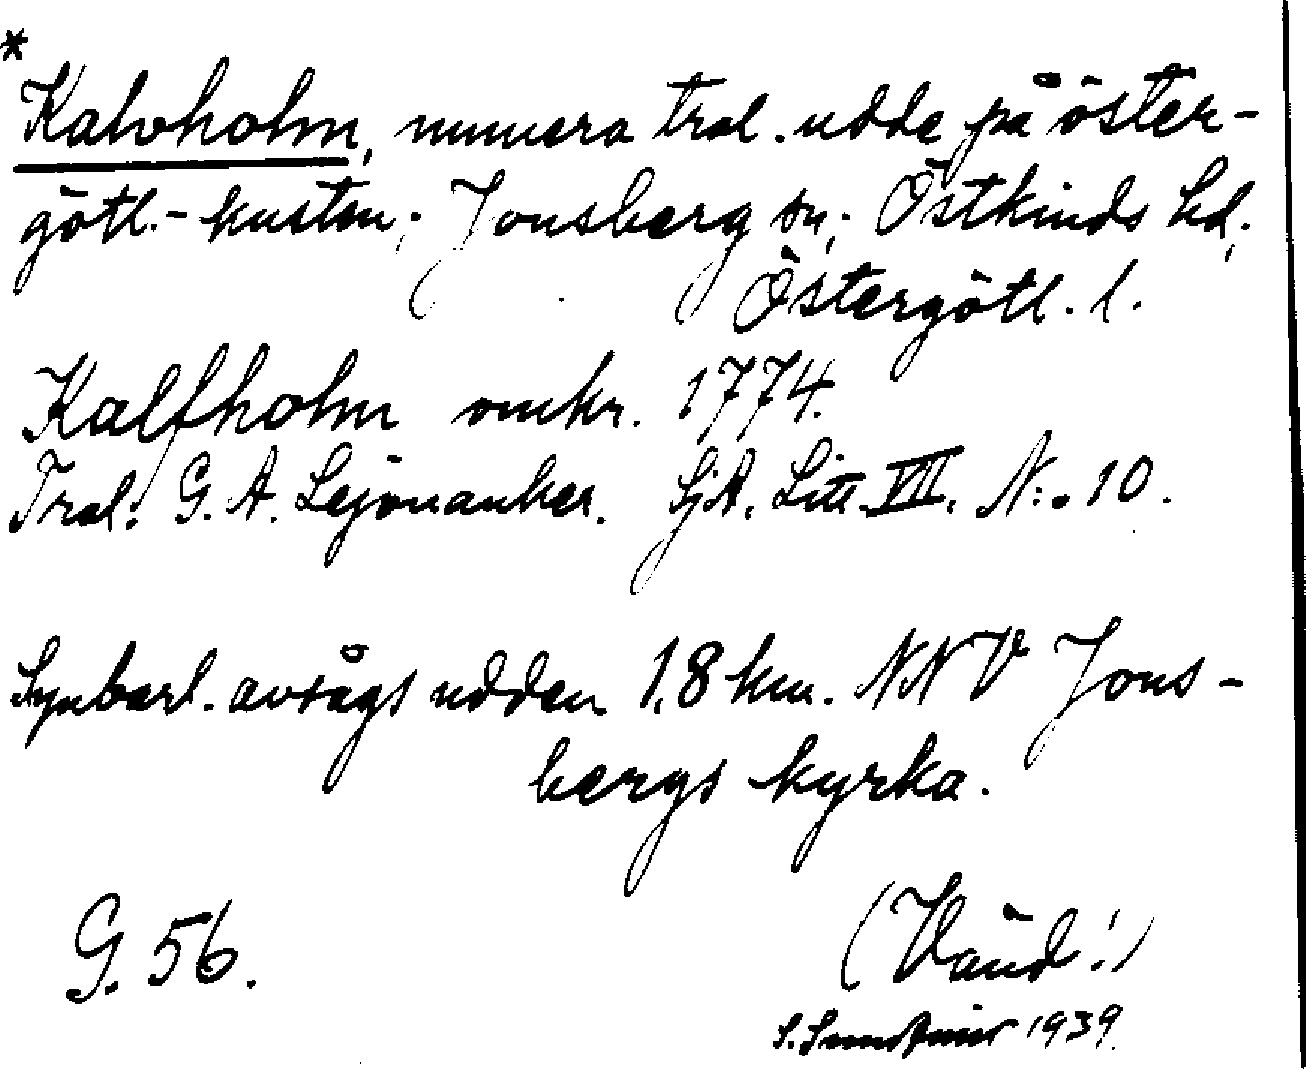 *
Kalvholm, numera trol. udde på öster-
götl.-kusten; Jonsberg sn; Östkinds hd;
Östergötl. l.
Kalfholm omkr. 1774.
Trol. G. A. Lejonanker. SjA. Litt. VII. N:o 10.
Synbarl. avsågs udden 1,8 km. NNV Jons-
bergs kyrka.
G. 56.
(Vänd!)
S. 1939.